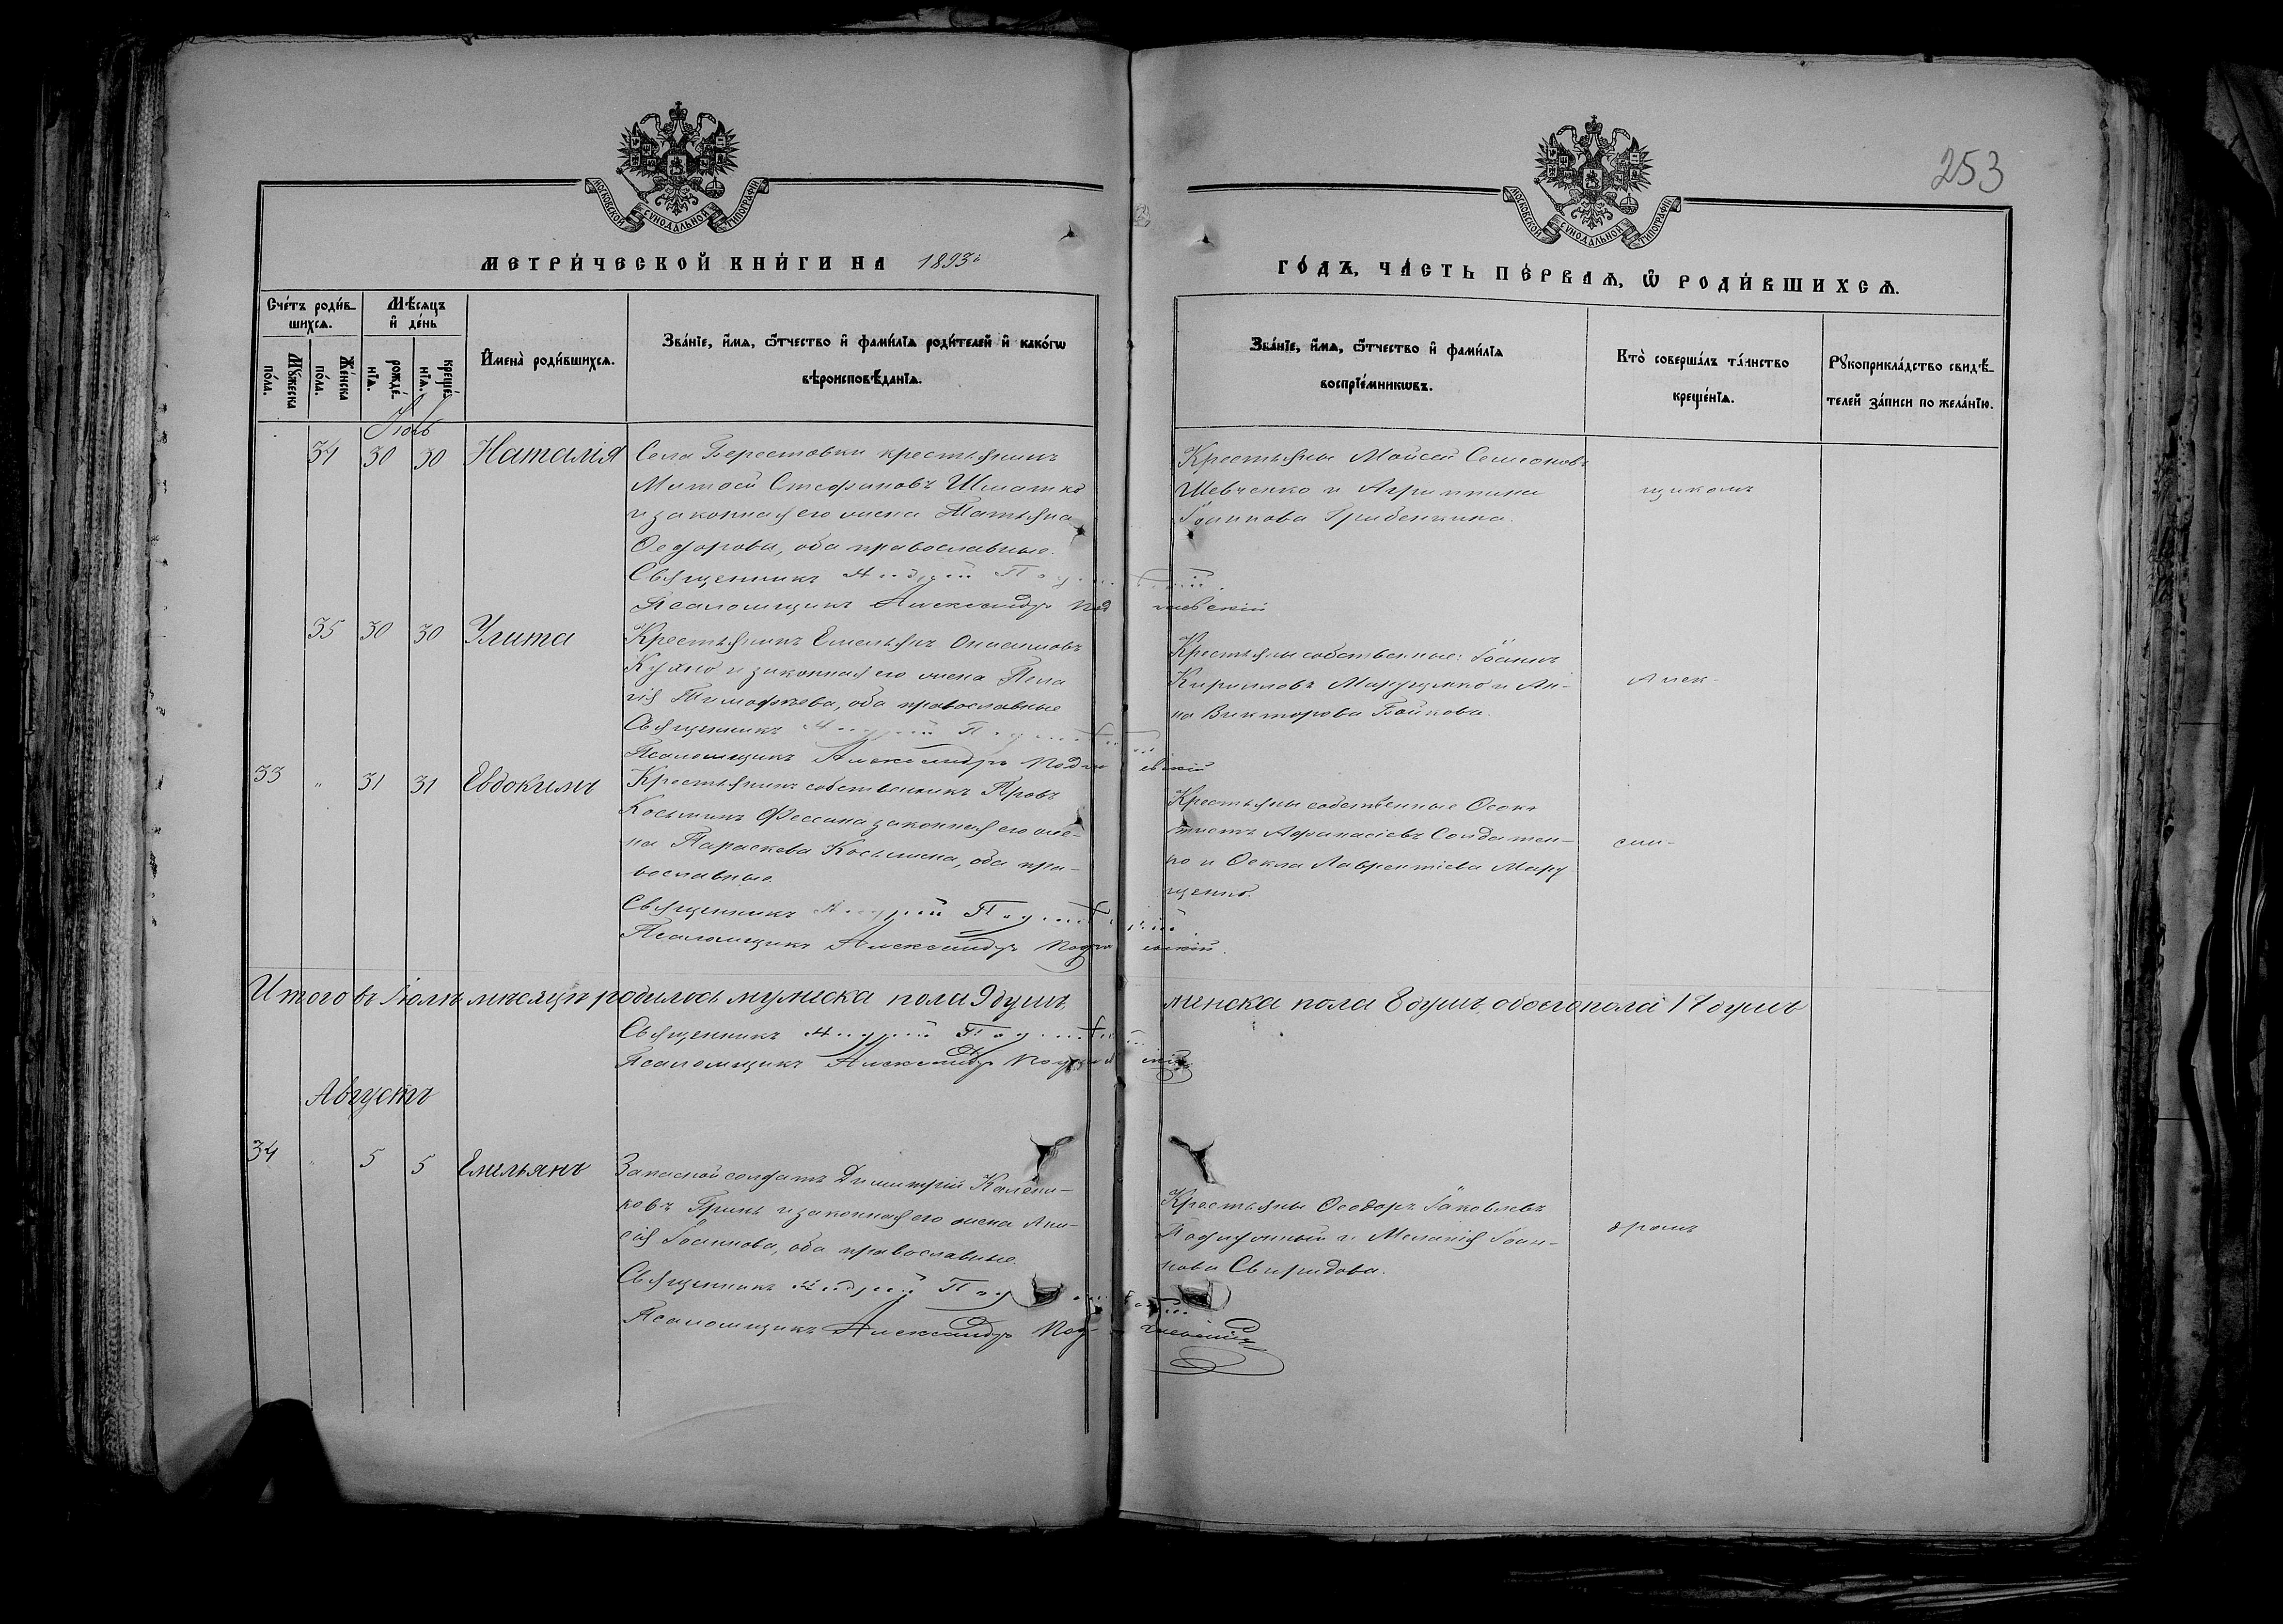 253
МОСКОВСКОЙ СУНОДАЛЬНОЙ ТИПОГРАФІИ
МОСКОВСКОЙ СУНОДАЛЬНОЙ ТИПОГРАФІИ
МЕТРИ́ЧЕСКОЙ КНИ́ГИ НА 1893
ГО́ДЪ, ЧА́СТЬ ПЕ́РВАѦ, Ѿ РОДИ́ВШИХСѦ.
Сче́тъ роди́вшихсѧ.
Мѣ́сѧцъ и҆ де́нь
Мꙋ́жеска по́ла.
Же́нска по́ла.
рожде́нїѧ.
креще́нїѧ.
И҆мена̀ роди́вшихсѧ.
Зва́нїе, и҆́мѧ, ѻ҆́тчество и҆ фами́лїѧ роди́телей и҆ како́гѡ
вѣроисповѣ́данїѧ.
Зва́нїе, и҆́мѧ, ѻ҆́тчество и҆ фами́лїѧ
воспрїе́мникѡвъ.
Кто̀ соверша́лъ та́инство
креще́нїѧ.
Рꙋкоприкла́дство свидѣ́-
телей за́писи по жела́нїю.
34 30 30 Наталія
Села Берестовки крестьянинъ
Стефановъ Шматко
и законная его жена Татьяна
Ѳеодорова, оба православные.
Священникъ Андрей
Псаломщикъ Александръ
Крестьяне Мойсей Семеоновъ
Шевченко и Агриппина
Іоаннова Гребенкина.
щикомъ
35 30 30 Улита
Крестьянинъ Емельянъ Онисимовъ
и законная его жена Пела
гія Тимофѣева, оба православные
Священникъ Андрей
Псаломщикъ Александръ
Крестьяне собственные: Іоаннъ
Кирилловъ Марущенко и Ан-
на Викторова Бойкова.
Алек-
33 " 31 31 Евдокимъ
Крестьянинъ собственникъ Провъ
Косьминъ законная его же-
на Параскева Косьмина, оба пра-
вославные.
Священникъ Андрей
Псаломщикъ Александръ
Крестьяне собственные Ѳеок-
тистъ Афанасіевъ Солдатен-
ко и Ѳекла Лаврентіева Мару
щенко.
сан-
Итого въ Іюлѣ мѣсяцѣ родилось мужеска пола 9 душъ, женска пола 8 душъ, обоего пола 17 душъ
Священникъ Андрей
Псаломщикъ Александръ
Августъ
34 " 5 5 Емельянъ
Запасной солдатъ Димитрій Калени-
ковъ Гринь и законная его жена Ани-
сія Іоаннова, оба православные.
Священникъ Андрей
Псаломщикъ Александръ
Крестьяне Ѳеодоръ Іаковлевъ
и Меланія Іоан-
нова Свиридова.
дромъ